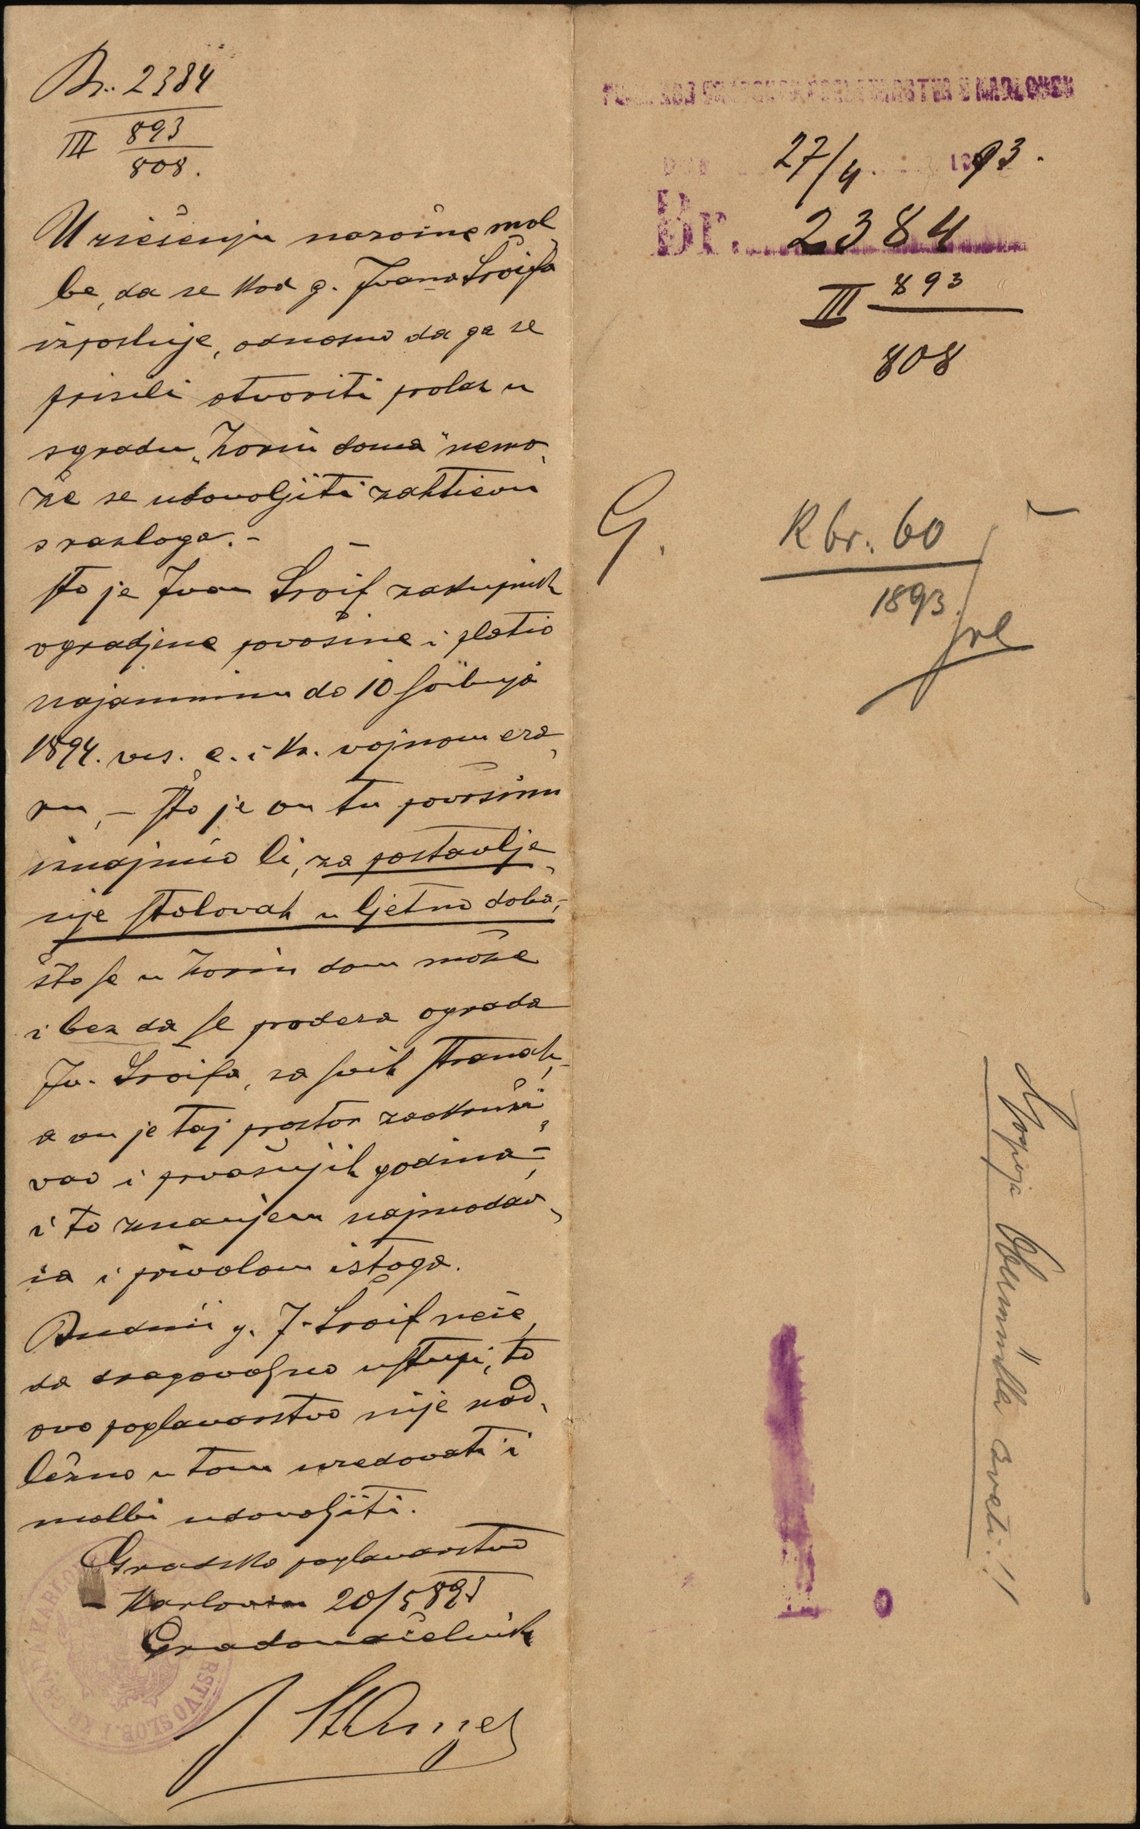 Br. 2384
III 893
808.
U riešenju naročne mol
be, da se kod g. Ivana Šroifa
izposluje, odnosno da ga se
prisili otvoriti prolaz u
sgradu „Zorin doma" nemo
že se udovoljiti zahtievu
s razloga. -
što je Ivan Šroif zakupnik
ogradjene površine i platio
najamninu do 10 svibnja
1894. c. i kr. vojnom era
ru, - što je on tu površinu
iznajmio li, za postavlje
nje stolovah u ljetno doba,
što se u Zorin dom može
i bez da se prodera ograda
Iv. Šroifa, sa svih stranah,
a on je taj prostor zaokruži
vao i prvašnjih godina,
i to znanjem najmodav
ca i privolom istoga.
Budući g. I. Šroif neće
da dragovoljno ustupi, to
ovo poglavarstvo nije nad
ležno u tom uredovati i
molbi udovoljiti.
Gradsko poglavarstvo
Karlovac 20/5 893
Gradonačelnik
27/4. 1893.
Br. 2384
III 893
808
G. R br. 60
1893
Gospoja sveti!!